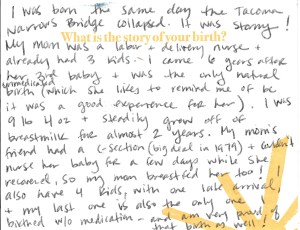 I was born the same day the Tacoma
Narrows Bridge collapsed. It was Stormy!
What is the story of your birth?
My mom was a labor + delivery nurse +
already had 3 kids. I came 6 years after
her 3rd baby + was the only natural
unmedicated
birth (which she likes to remind me of bc
it was a good experience for her). I was
9 lb 4 oz + steadily grew off of
breastmilk for almost 2 years. My mom's
friend had a C-section (big deal in 1979) + couldn't
nurse her baby for a few days while she
recovered, so my mom breastfed her too! I
also have 4 kids, with one late arrival,
+ my last one is also the only one I
birthed w/o medication - and am very proud of
that birth as well!